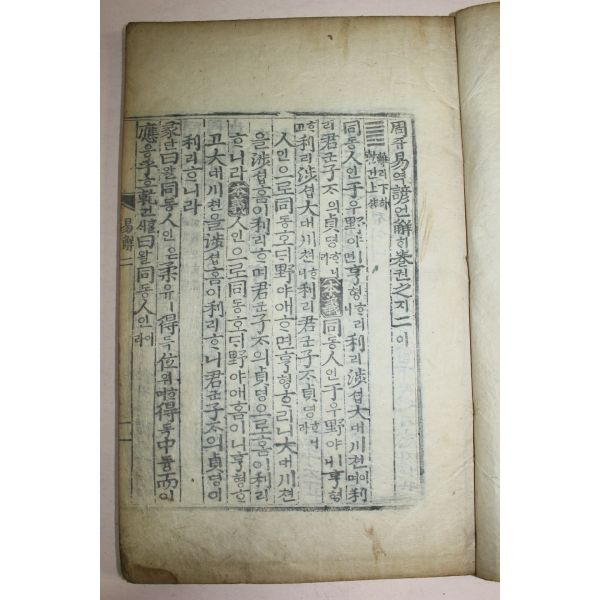 周쥬易역諺언解ᄒᆡ卷권之지二이
䷌ 離리下하 乾건上샹
同동人인于우野야면亨형ᄒᆞ리니利리涉셥大대川쳔이며利
리君군子ᄌᆞ의貞뎡ᄒᆞ니라 本義 同동人인于우野야ㅣ니亨형
ᄒᆞ고利리涉셥大대川쳔ᄒᆞ니利리君군子ᄌᆞ貞뎡ᄒᆞ니라
人인으로同동호ᄃᆡ野야애ᄒᆞ면亨형ᄒᆞ리니大대川쳔
을涉셥홈이利리ᄒᆞ며君군子ᄌᆞ의貞뎡으로홈이利리
ᄒᆞ니라 本義 人인으로同동호ᄃᆡ野야애홈이니亨형ᄒᆞ
고大대川쳔을涉셥홈이利리ᄒᆞ니君군子ᄌᆞ의貞뎡이
利리ᄒᆞ니라
彖단曰왈同동人인은柔유ㅣ得득位위ᄒᆞ며得득中듕而이
應응乎호乾건ᄒᆞᆯᄉᆡ曰왈同동人인이라
易解二 一